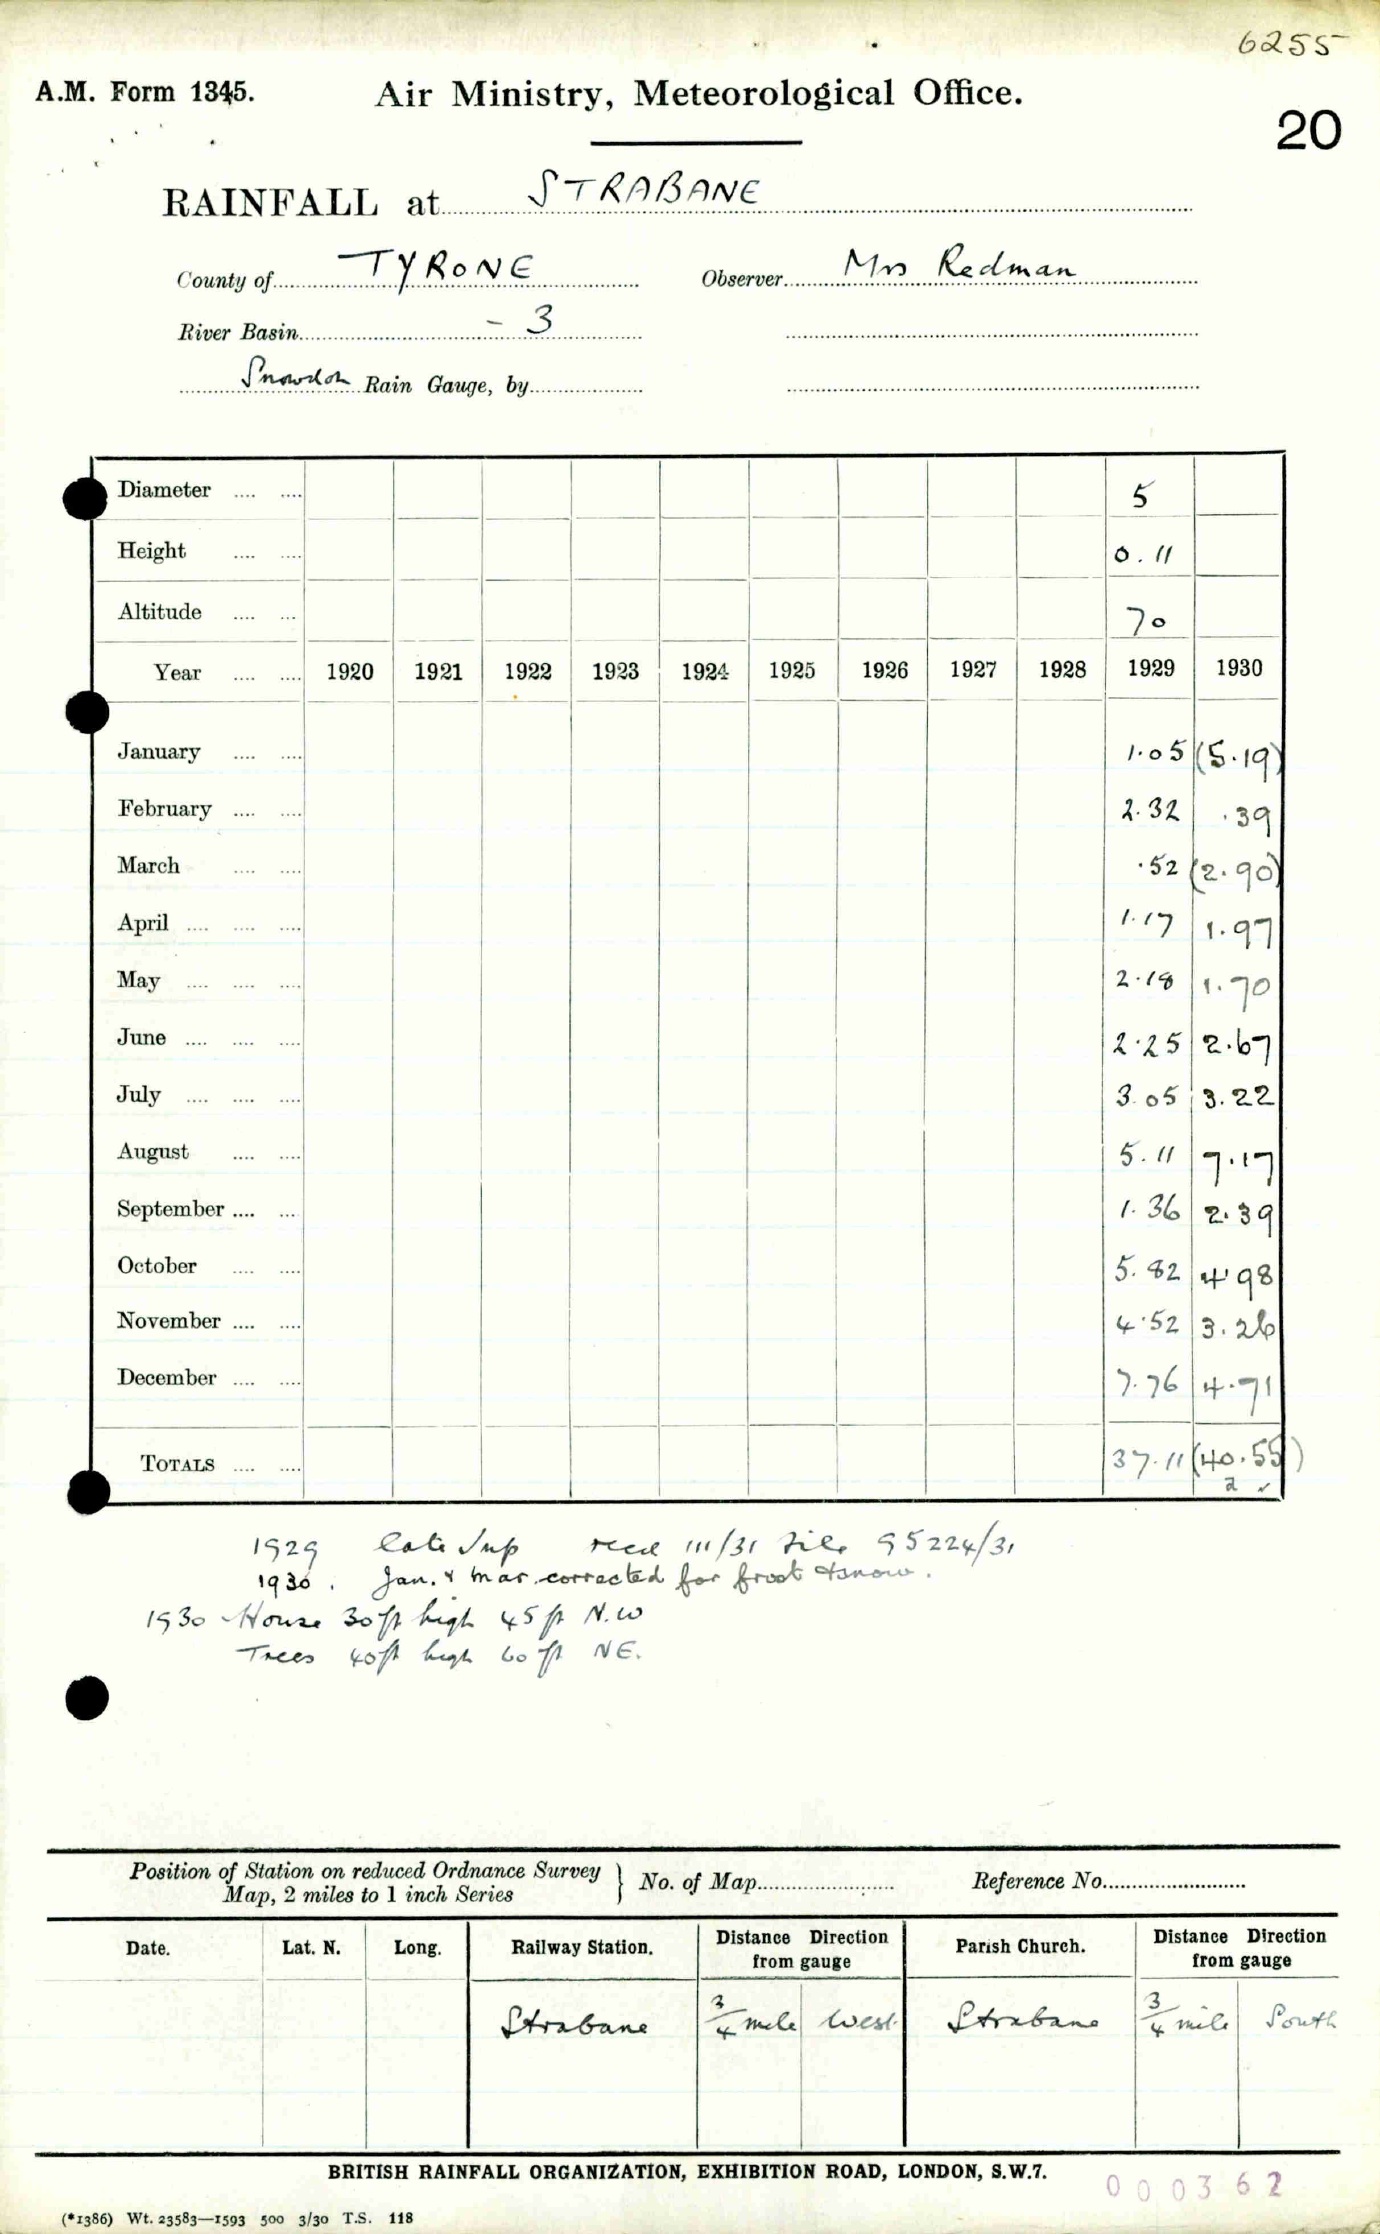 6255
A.M. Form 1345.
Air Ministry, Meteorological Office.
20
RAINFALL at STRABANE
County of TYRONE Observer Mrs Redman
River Basin - 3
Snowdon Rain Gauge, by
Diameter 5
Height 0.11
Altitude 70
Year 1920 1921 1922 1923 1924 1925 1926 1927 1928 1929 1930
January 1.05 (5.19)
February 2.32 .39
March .52 (2.90)
April 1.17 1.97
May 2.18 1.70
June 2.25 2.67
July 3.05 3.22
August 5.11 7.17
September 1.36 2.39
October 5.82 4.98
November 4.52 3.26
December 7.76 4.71
TOTALS 37.11 (40.55)
1929 late Sup recd 111/31 File 95224/31
1930. Jan. & Mar. corrected for frost & snow.
1930 House 30ft high 45ft N.W
Trees 40ft high 60ft NE.
Position of Station on reduced Ordnance Survey Map, 2 miles to 1 inch Series } No. of Map Reference No.
Date. Lat. N. Long. Railway Station. Distance Direction from gauge Parish Church. Distance Direction from gauge
Strabane 3/4 mile West Strabane 3/4 mile South
BRITISH RAINFALL ORGANIZATION, EXHIBITION ROAD, LONDON, S.W.7.
000362
(*1386) Wt. 23583—1593 500 3/30 T.S. 118